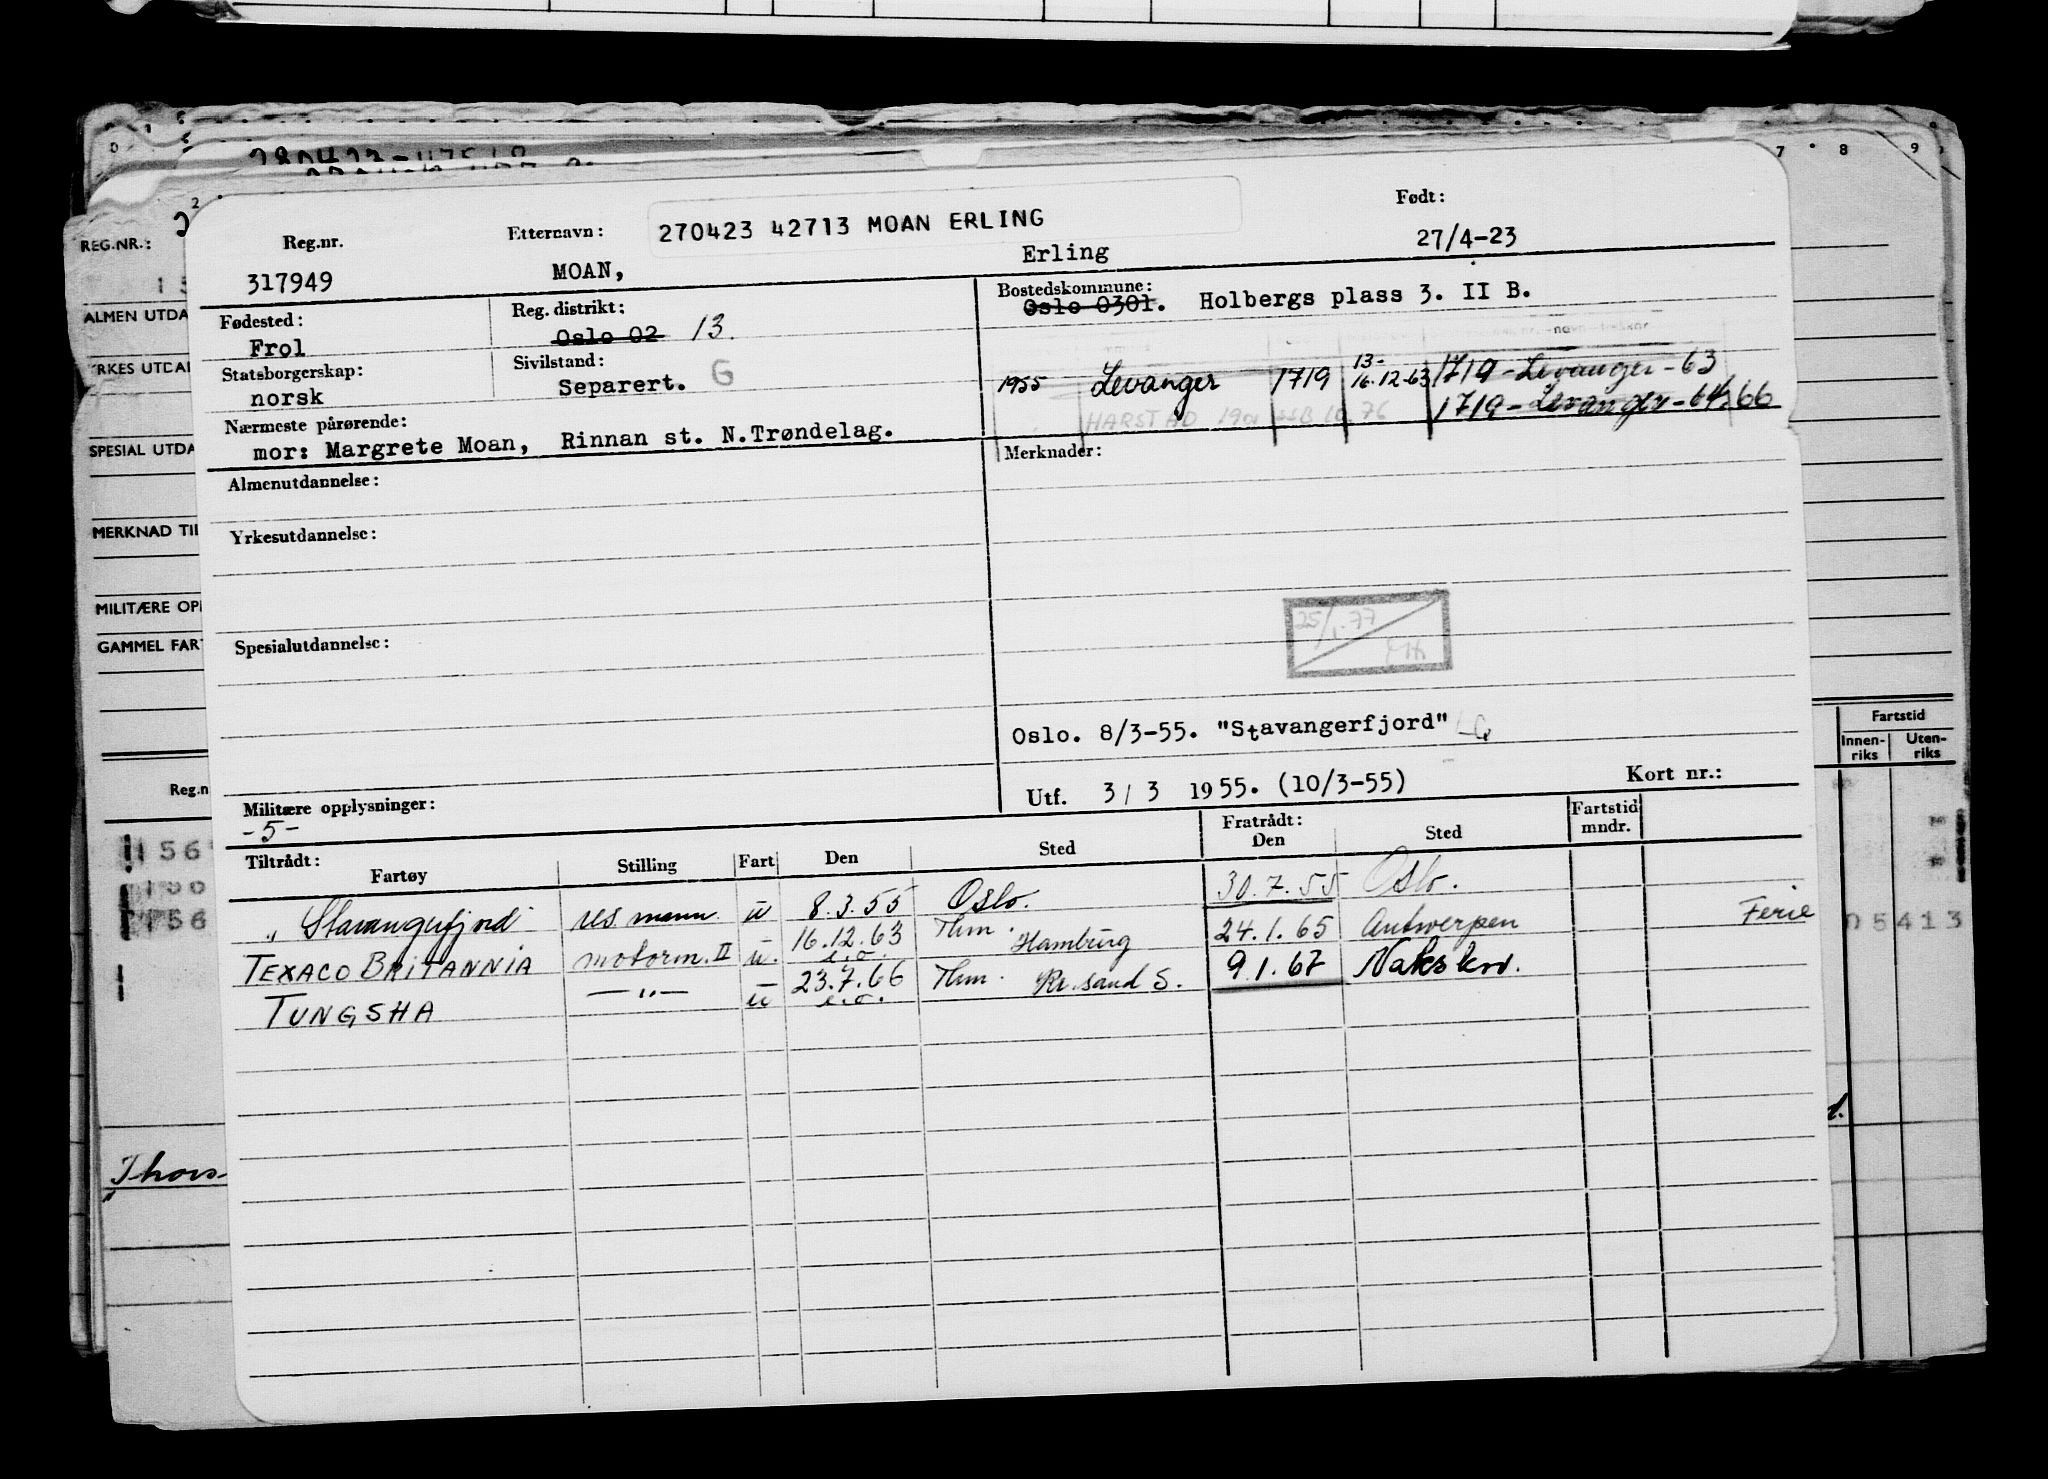 7 8 9
280423-47518
REG.NR.:
ALMEN UTDA
RKES UTDAN
SPESIAL UTDA
MERKNAD TIL
MILITÆRE OPP
GAMMEL FART
Reg.n
Reg.nr. Etternavn: 270423 42713 MOAN ERLING Født:
317949 MOAN, Erling 27/4-23
Fødested: Reg. distrikt: Bostedskommune:
Frol Oslo 02 13. Oslo 0301. Holbergs plass 3. II B.
Statsborgerskap: Sivilstand:
norsk Separert. G
1955 Levanger 1719 13-16.12-63 1719-Levanger-63
HARSTAD 1901 10.76 1719-Levanger-64,66
Nærmeste pårørende:
mor: Margrete Moan, Rinnan st. N.Trøndelag.
Merknader:
Almenutdannelse:
Yrkesutdannelse:
25/1.77
Spesialutdannelse:
Oslo. 8/3-55. "Stavangerfjord"
Utf. 3/3 1955. (10/3-55) Kort nr.:
Militære opplysninger:
-5-
Tiltrådt: Fratrådt: Fartstid
Fartøy Stilling Fart Den Sted Den Sted mndr.
"Stavangerfjord" res mann u 8.3.55 Oslo. 30.7.55 Oslo.
TEXACO BRITANNIA motorm. II u. 16.12.63 e.o. Hm. Hamburg 24.1.65 Antwerpen Ferie
TUNGSHA —"— u 23.7.66 e.o. Hm. Kr.sand S. 9.1.67 Nakskov.
Fartstid
Innen-riks Uten-riks
05413
Thors